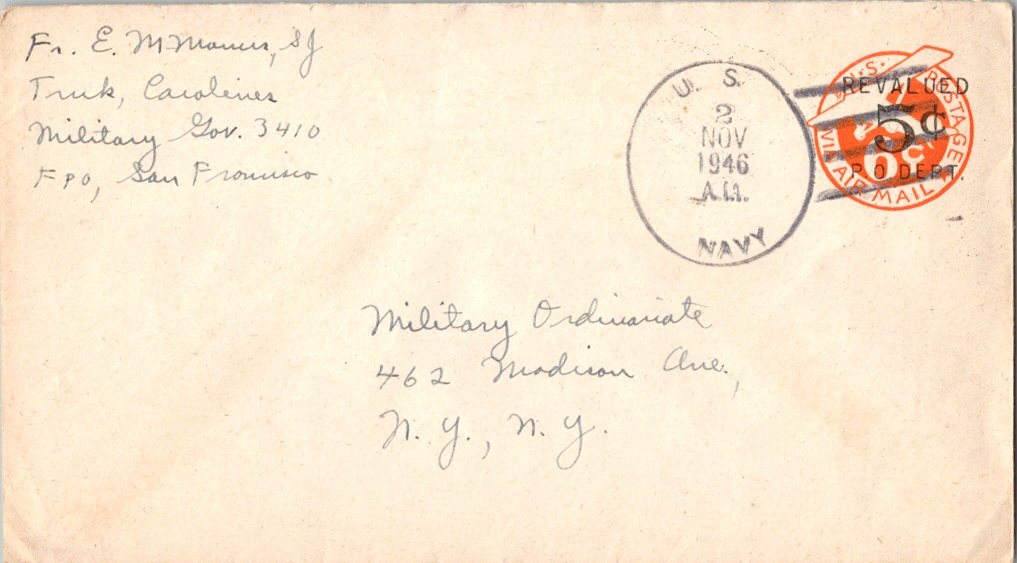 Fr. E. McManus, SJ
Truk, Carolines
Military Gov. 3410
FPO, San Francisco
U. S.
2
NOV
1946
A.M.
NAVY
U.S. POSTAGE
REVALUED
5¢
6¢
P.O. DEPT.
VIA AIR MAIL
Military Ordinariate
462 Madison Ave.,
N. Y., N. Y.